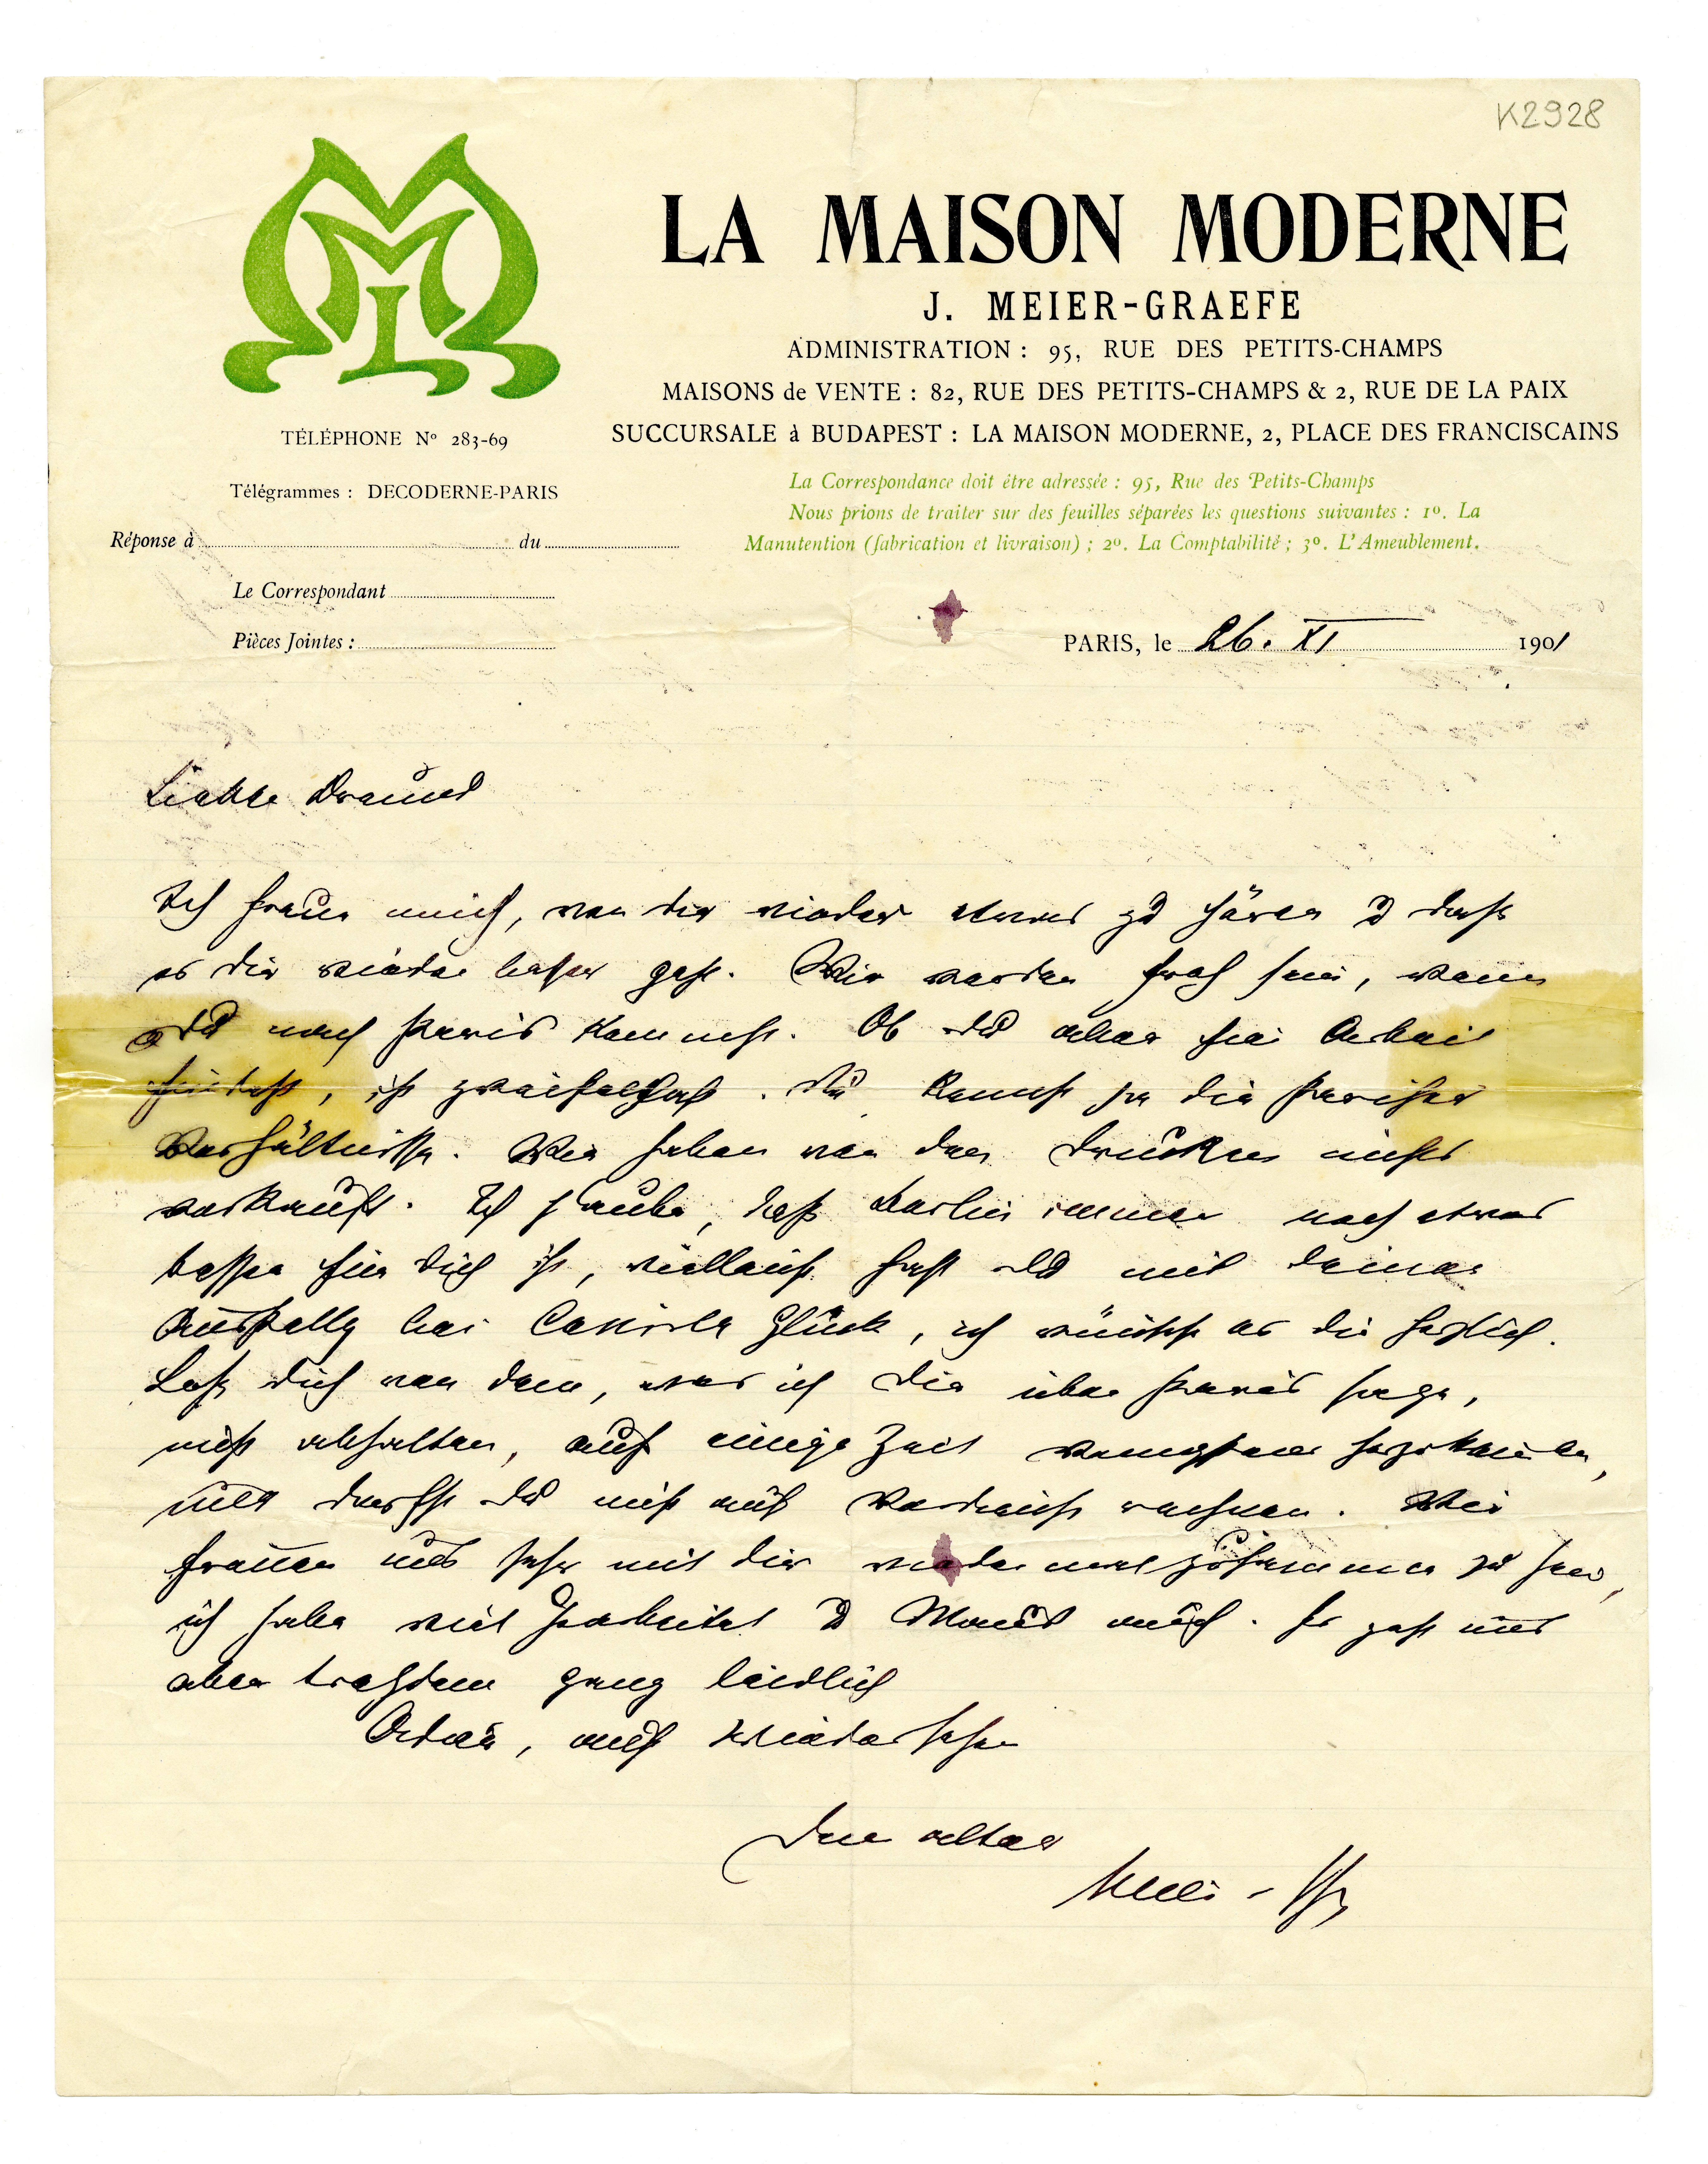 K2928
LA MAISON MODERNE
J. MEIER-GRAEFE
ADMINISTRATION : 95, RUE DES PETITS-CHAMPS
MAISONS de VENTE : 82, RUE DES PETITS-CHAMPS & 2, RUE DE LA PAIX
SUCCURSALE à BUDAPEST : LA MAISON MODERNE, 2, PLACE DES FRANCISCAINS
TÉLÉPHONE No 283-69
Télégrammes : DECODERNE-PARIS
La Correspondance doit être adressée : 95, Rue des Petits-Champs
Nous prions de traiter sur des feuilles séparées les questions suivantes : 1o. La
Manutention (fabrication et livraison) ; 2o. La Comptabilité ; 3o. L'Ameublement.
Réponse à du
Le Correspondant
Pièces Jointes :
PARIS, le 26. XI 1901
Liebster Freund
Ich freue mich, von dir wieder etwas zu hören u daß
es dir wieder besser geht. Wir werden froh sein, wenn
du nach Paris kommst. Ob du aber hier Arbeit
findest, ist zweifelhaft. Du kennst ja die Pariser
Verhältnisse. Wir haben von den Drucken nichts
verkauft. Ich glaube, daß Berlin immer noch etwas
besser für dich ist, vielleicht hast du mit deiner
Ausstellg bei Cassirer Glück, ich wünsche es dir herzlich.
Laß dich von dem, was ich dir über Paris sage,
nicht abhalten, auf einige Zeit herzukommen,
nur darfst du nicht auf Verdienst rechnen. Wir
freuen uns sehr mit dir wieder mal zusammen zu sein,
ich habe viel gearbeitet u Maus auch. Es geht uns
aber trotzdem ganz leidlich
Adieu, auf Wiedersehen
Dein alter
Meier-Gr